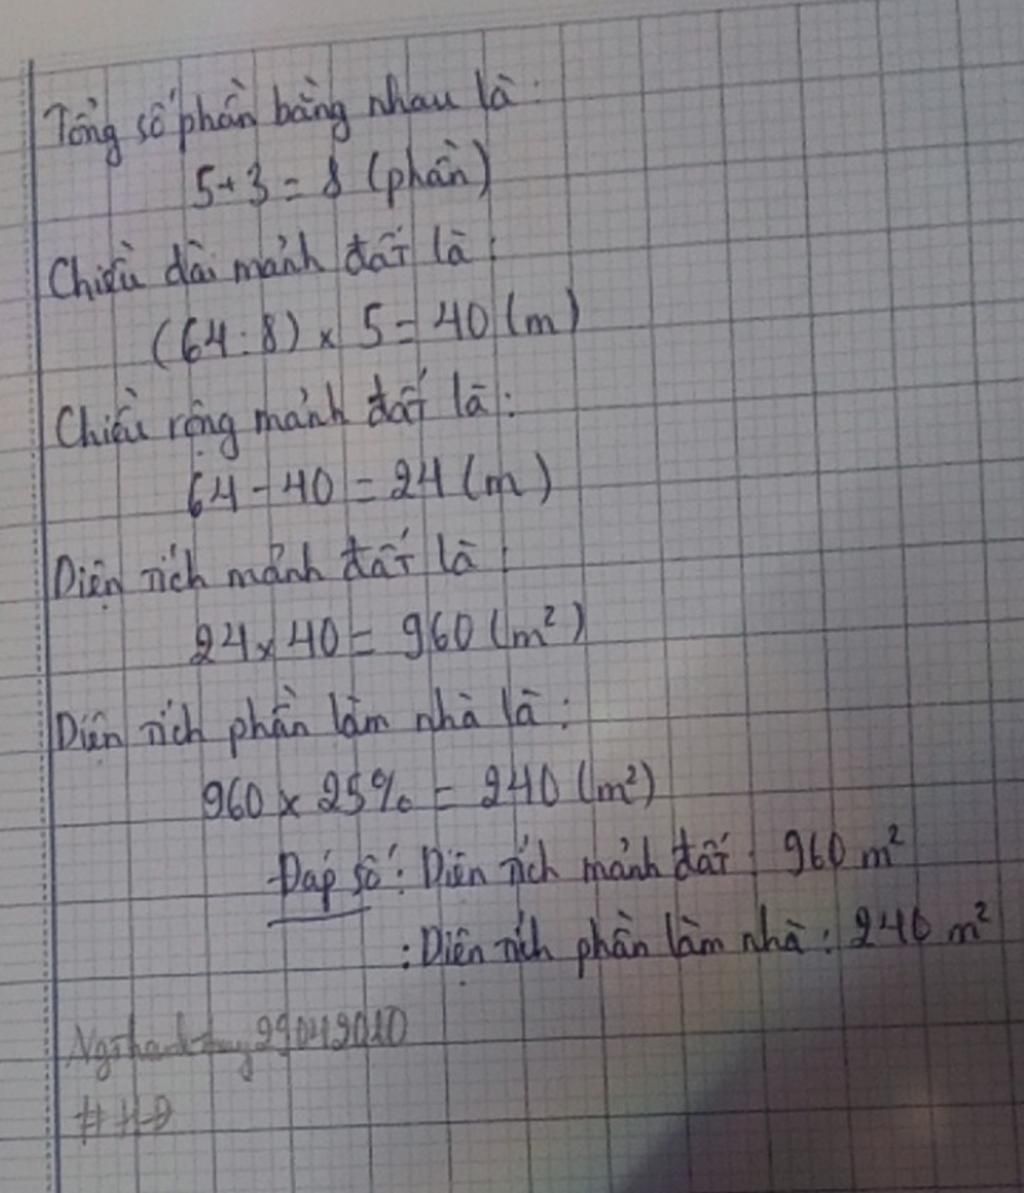 Tổng số phần bằng nhau là:
5+3=8 (phần)
Chiều dài mảnh đất là:
(64:8) x 5=40 (m)
Chiều rộng mảnh đất là:
64-40=24 (m)
Diện tích mảnh đất là:
24x40=960 (m²)
Diện tích phần làm nhà là:
960 x 25% = 240 (m²)
Đáp số: Diện tích mảnh đất: 960 m²
: Diện tích phần làm nhà: 240 m²